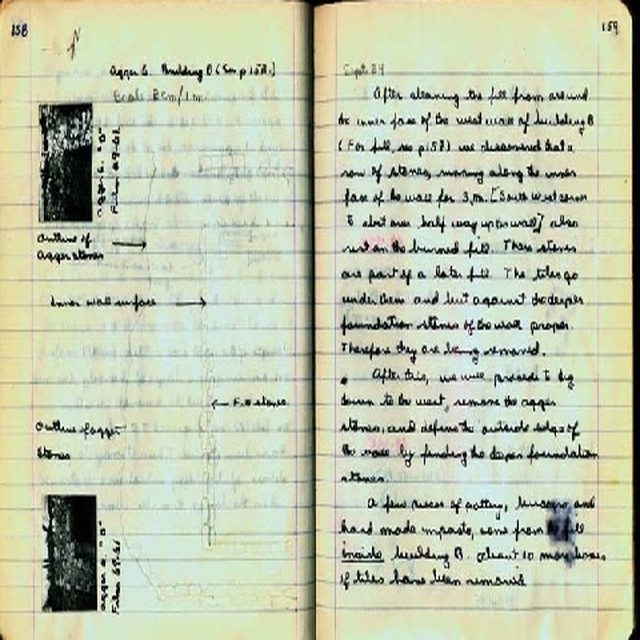 158
N
Agger G. Building B (See p 158.)
Scale 2cm/1m.
Film 69-61
Outline of
Agger stones
Inner wall surface
Fill stones
Outline of agger
Stones
Agger G. "B"
Film 69-61
159
Sept 24
After cleaning the fill from around
the inner face of the west wall of building B
(For fill, see p 157) we discovered that a
row of stones, running along the inner
face of the wall for 3m. [South West corner
to about over half way up the wall] also
rest on the burned fill. These stones
are part of a later fill. The tiles go
under them and but against the deeper
foundation stones of the wall proper.
Therefore they are being removed.
After this, we will proceed to dig
down to the west, remove the agger
stones, and define the outside edge of
the wall by finding the deeper foundation
stones.
A few pieces of pottery, bucchero and
hand made impasto, come from the fill
inside building B. At least 10 more boxes
of tiles have been removed